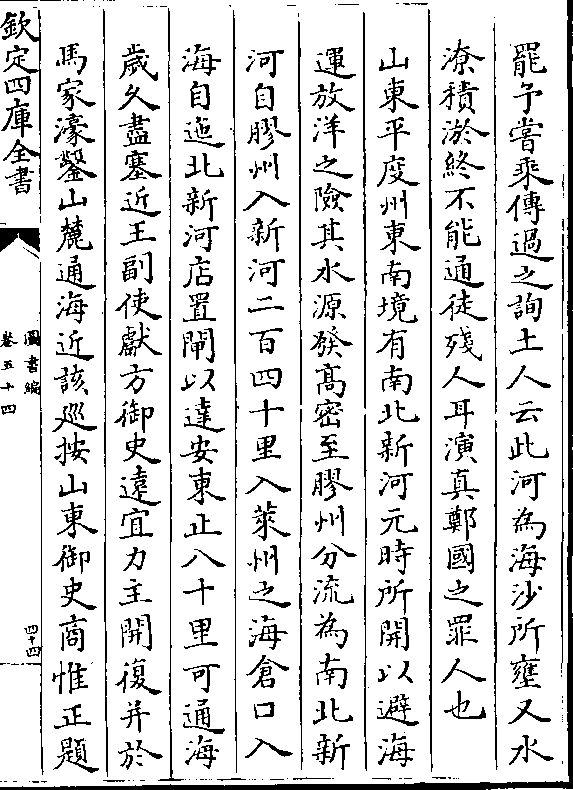 罷予嘗乘傳過之詢土人云此河為海沙所壅又水
潦積淤終不能通徒殘人耳演真鄭國之罪人也
山東平度州東南境有南北新河元時所開以避海
運放洋之險其水源發髙密至膠州分流為南北新
河自膠州入新河二百四十里入萊州之海倉口入
海自迤北新河店置閘以達安東止八十里可通海
歲久盡塞近王副使獻方御史遠宜力主開復并於
馬家濠鑿山麓通海近該廵按山東御史商惟正題
欽定四庫全書
圖書編
卷五十四
四十四